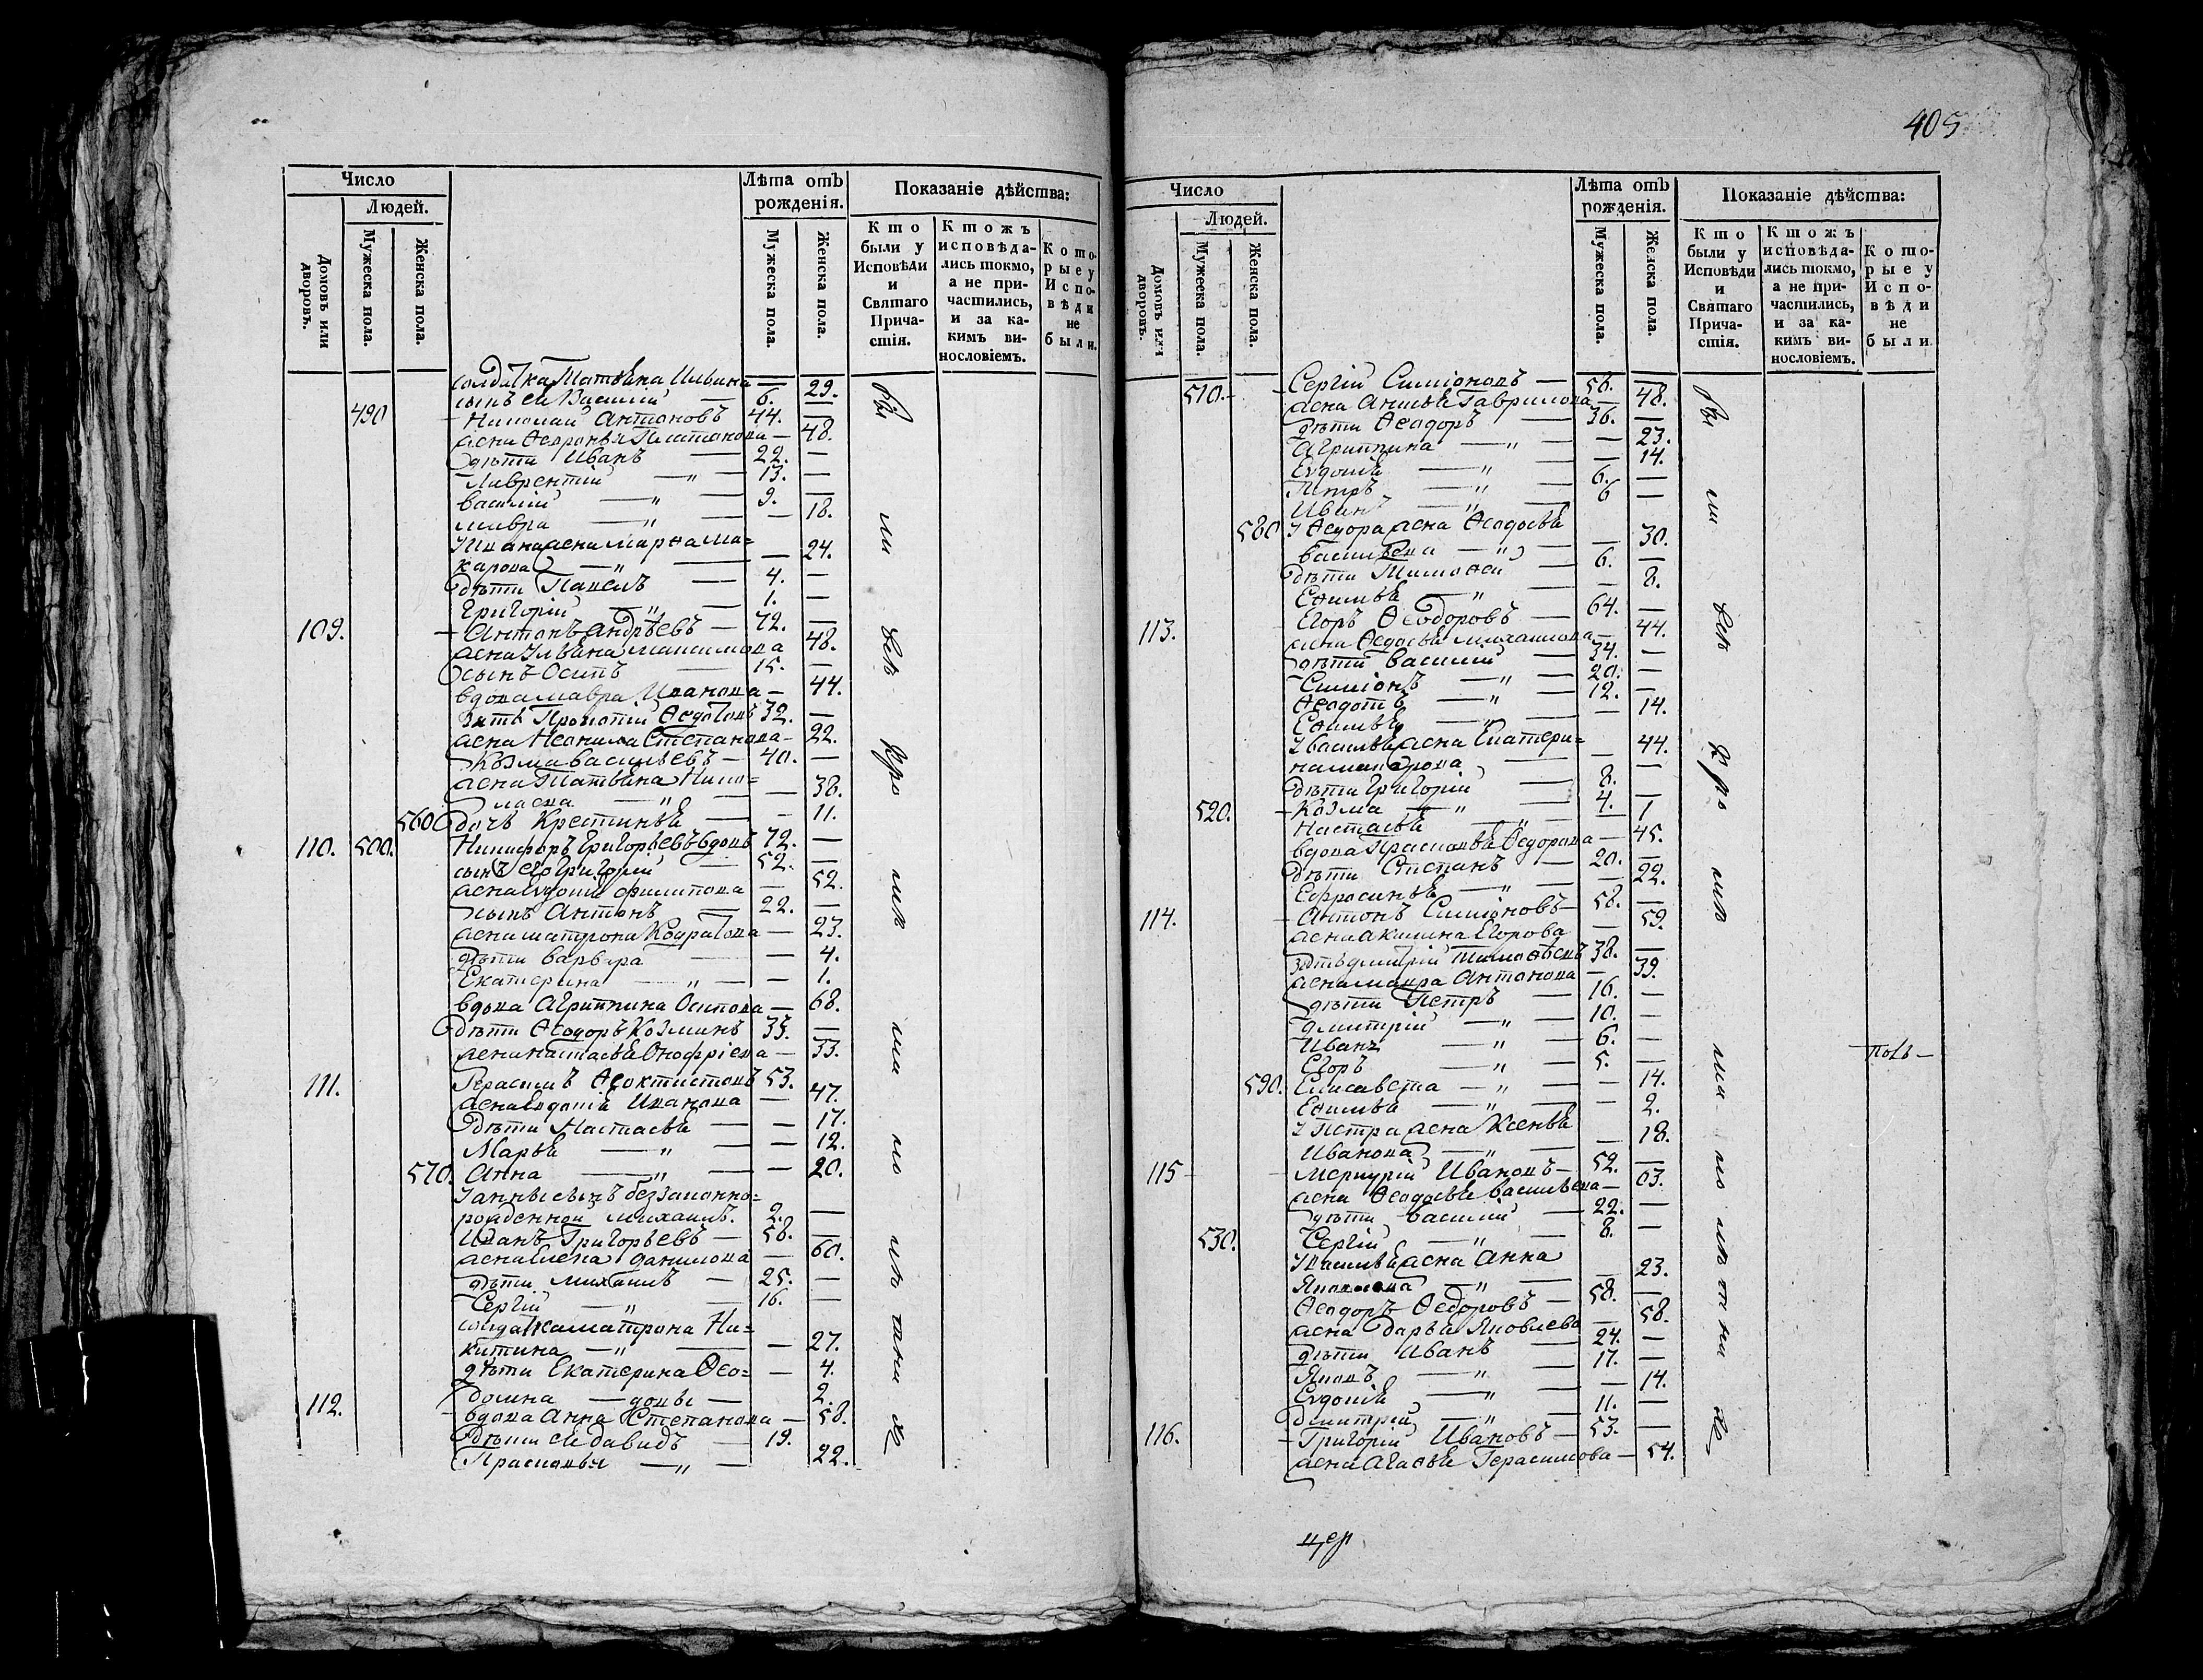 405
Число
Людей.
Домовъ или дворовъ.
Мужеска пола.
Женска пола.
Лѣта отъ рожденія.
Мужеска пола.
Женска пола.
Показаніе дѣйства:
Кто были у Исповѣди и Святаго Причастія.
Ктожъ исповѣдались токмо, а не причастились, и за какимъ винословіемъ.
Которые у Исповѣди не были.
солдатка Татьяна 29.
сынъ ея Василій — 6. —
490 Николай Антоновъ 44. —
жена Платонова — 48.
дѣти Иванъ — 22. —
Лаврентій — „ — 13. —
Василій — „ — 9. —
Мавра — „ — — 18.
У Ивана жена Марѳа Ма=
карова — „ — — 24.
дѣти Павелъ — 4. —
Григорій — „ — 1. —
109. Антонъ Андрѣевъ — 72. —
жена Ульяна Максимова 48.
сынъ Осипъ — 15. —
вдова Мавра Иванова — 44.
зять Прокопій Ѳедотовъ 32. —
жена Неонила Степанова — 22.
Козма Васильевъ — 40. —
жена Татьяна Нико=
лаева — „ — — 38.
560 дочь Крестинья — - 11.
110. 500. Никифоръ Григорьевъ вдовъ 72. —
сынъ его Григорій — 52. —
жена Евдокія Филипова — 52.
сынъ Антонъ — 22. —
жена Матрона Кодратова — 23.
дѣти Варвара — — 4.
Екатерина — „ — — 1.
вдова Агрипина Осипова — 68.
дѣти Ѳеодоръ Козминъ 33. —
жена Настасья Онофріева — 33.
111. Герасимъ Ѳеоктистовъ 53.
жена Евдокія Иванова — 47.
дѣти Настасья — — 17.
Марья — „ — — 12.
570. Анна — „ — — 20.
У Анны сынъ беззаконно=
рожденной Михаилъ. 2. —
Иванъ Григорьевъ — 58. —
жена Елена Данилова — 60.
дѣти Михаилъ — 25. —
Сергій — „ — 16. —
солдатка Матрона Ни=
китина — „ — — 27.
дѣти Екатерина Ѳео= — 4.
досина — 2.
112. вдова Анна Степанова — 58.
дѣти ея Давидъ — 19.
Прасковья — „ — 22.
Число
Людей.
Домовъ или дворовъ.
Мужеска пола.
Женска пола.
Лѣта отъ рожденія.
Мужеска пола.
Женска пола.
Показаніе дѣйства:
Кто были у Исповѣди и Святаго Причастія.
Ктожъ исповѣдались токмо, а не причастились, и за какимъ винословіемъ.
Которые у Исповѣди не были
510. Сергій Симіоновъ — 56. —
жена Гаврилова — 48.
дѣти Ѳеодоръ — 36. —
Агрипина — „ — — 23.
Евдокія — „ — 14.
Петръ — „ — 6. —
Иванъ — „ — 6 —
580 У Ѳедора жена Ѳеодосья
Васильева — „ — — 30.
дѣти Тимоѳей — 6. —
Еѳимья — „ — — 8.
113. Егоръ Ѳеодоровъ — 64. —
жена Ѳедосья Михаилова — 44.
дѣти Василій — 34. —
Симіонъ — „ — 20. —
Ѳеодотъ — „ — 12. —
Еѳимья — „ — — 14.
У Василья жена Екатери=
на — 44.
дѣти Григорій — 8. —
520. Козма — „ — 4. —
Настасья — „ — 1
вдова Прасковья Ѳедорова — 45.
дѣти Степанъ — 20. —
Ефросинья — „ — — 22.
114. Антонъ Симіоновъ — 58. —
жена Акилина Егорова — 59.
зять Дмитрій Тимоѳѣевъ 38. —
жена Мавра Антонова — 39.
дѣти Петръ — 16. —
Дмитрій — „ — 10. —
Иванъ — „ — 6. —
Егоръ — „ — 5. —
590. Елисавета — „ — — 14.
Еѳимья — „ — — 2.
У Петра жена Ксенья
Иванова — „ — — 18.
115 Меркурій Ивановъ — 52. —
жена Ѳеодосья Васильева — 63.
дѣти Василій — 22. —
530. Сергій — „ — 8. —
У Василья жена Анна
Яковлева — „ — — 23.
Ѳеодоръ Ѳедоровъ — 58. —
жена Дарья Яковлева — 58.
дѣти Иванъ — 24. —
Яковъ — „ — 17. —
Евдокія — „ — — 14.
Димитрій — „ — 11. —
116. Григорій Ивановъ — 53. —
жена Агаѳья Герасимова — 54.